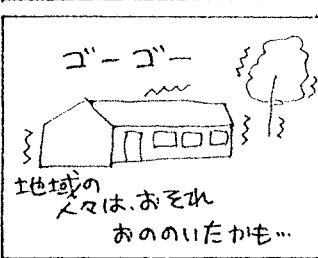 ゴーゴー
地域の
人々は、おそれ
おののいたかも…